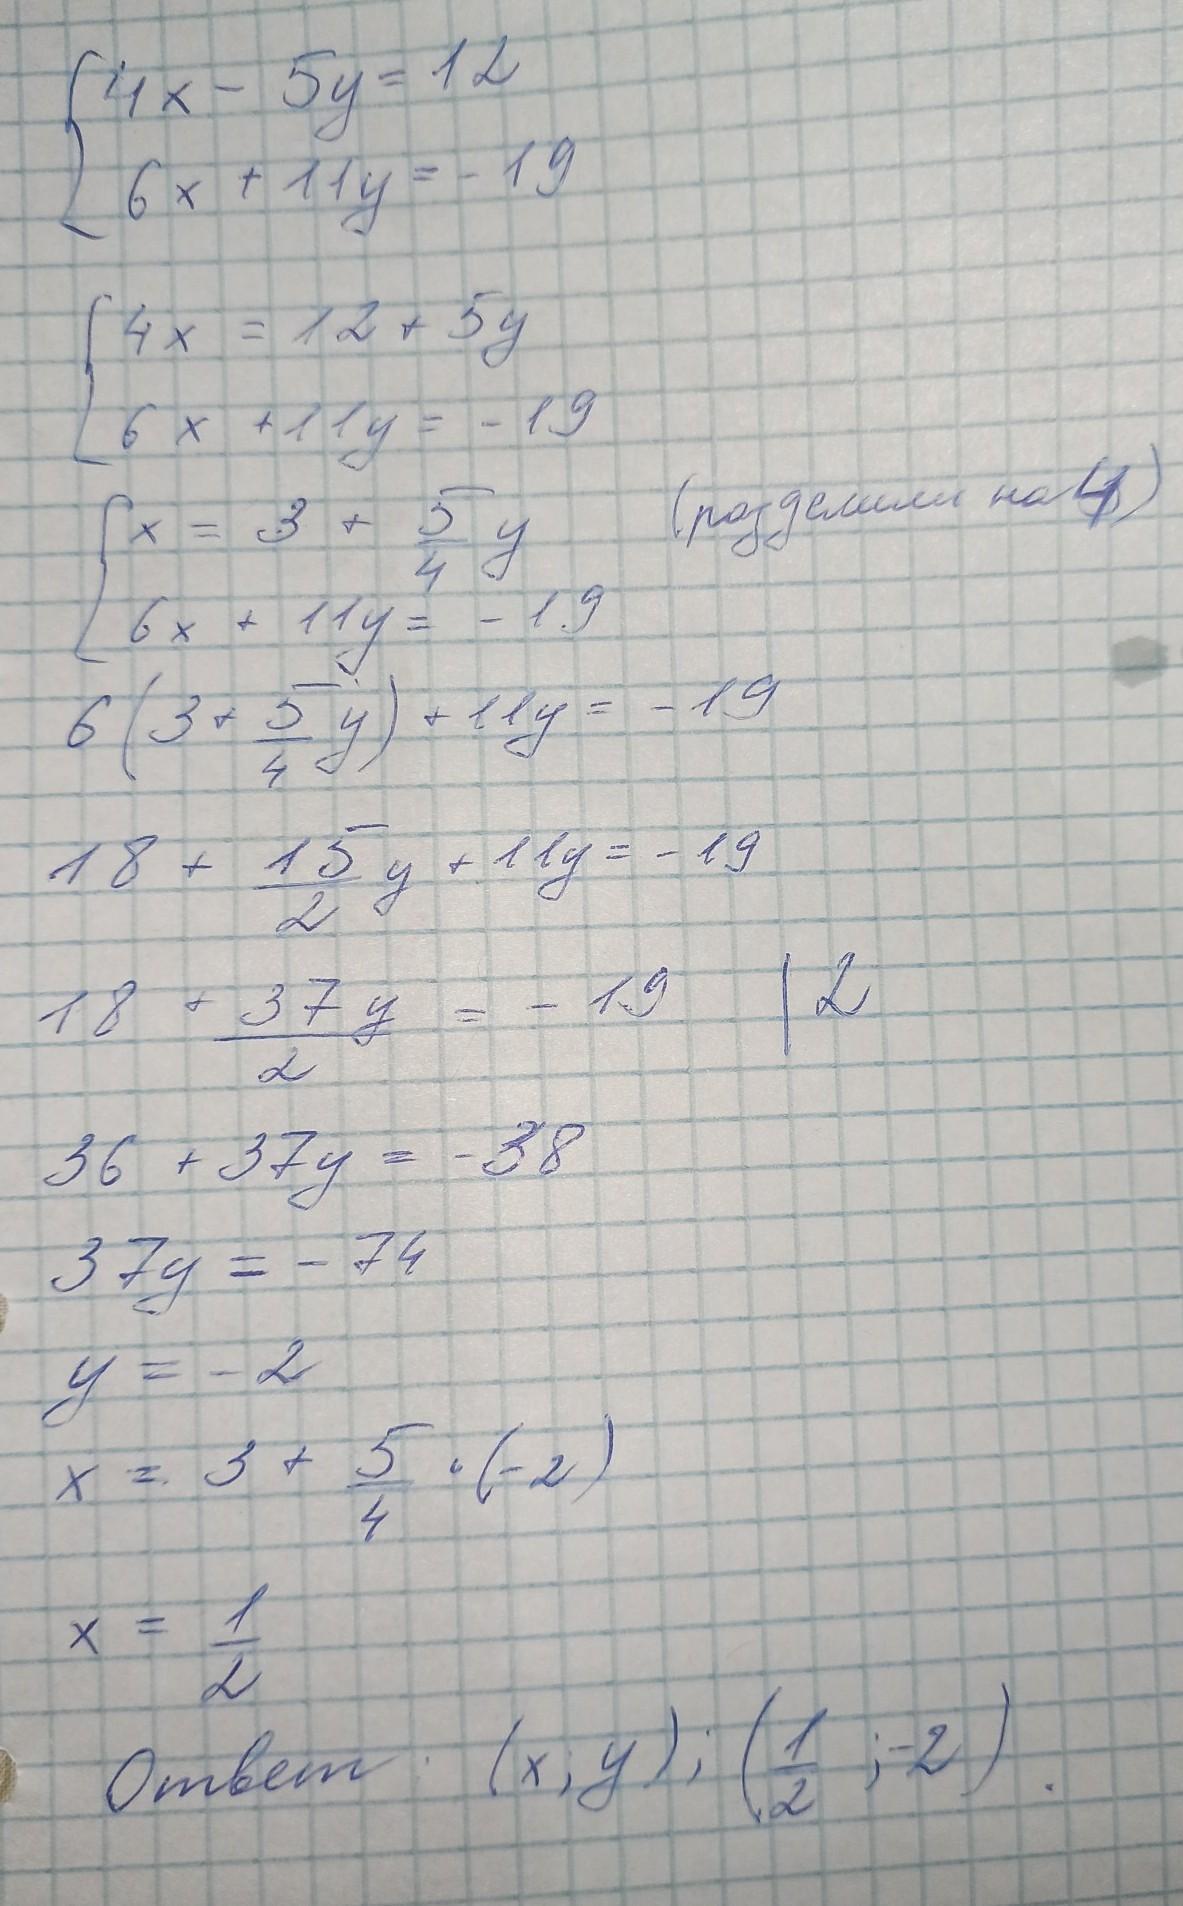 { 4x - 5y = 12
6x + 11y = - 19
{ 4x = 12 + 5y
6x + 11y = - 19
{ x = 3 + 5/4 y (разделили на 4)
6x + 11y = - 19
6(3 + 5/4 y) + 11y = - 19
18 + 15/2 y + 11y = - 19
18 + 37y/2 = - 19 | 2
36 + 37y = - 38
37y = - 74
y = - 2
x = 3 + 5/4 · (- 2)
x = 1/2
Ответ: (x; y); (1/2; -2).